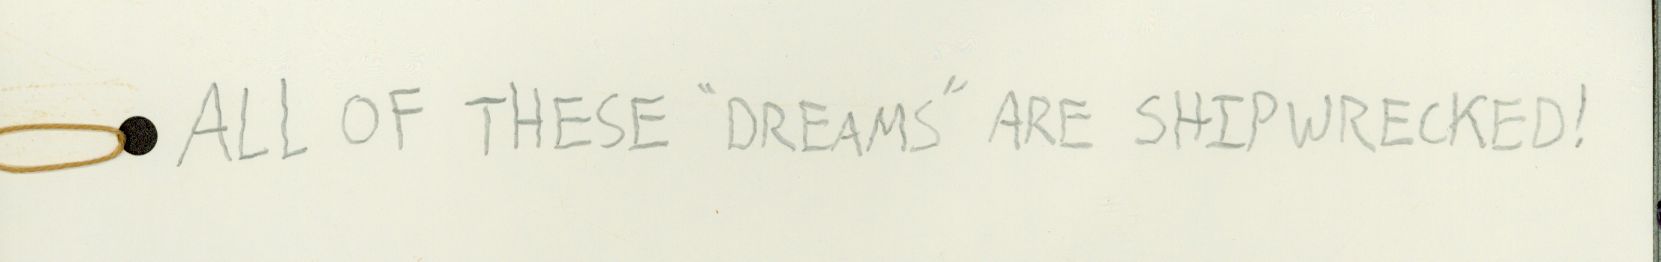 ALL OF THESE "DREAMS" ARE SHIPWRECKED!